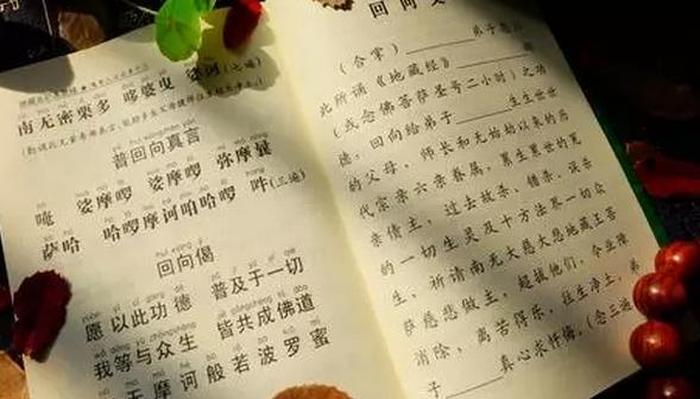 南无密栗多 哆婆曳 娑诃(七遍)
普回向真言
唵 娑摩啰 娑摩啰 弥摩曩
萨哈 哈啰摩诃咱哈啰 吽(三遍)
回向偈
愿以此功德 普及于一切
我等与众生 皆共成佛道
摩诃般若波罗蜜
回向文
(合掌)弟子
此所诵《地藏经》
(或念佛菩萨圣号二小时)之功
德,回向给弟子生生世世
的父母、师长和无始劫以来的历
代宗亲六亲眷属,累生累世的冤
亲债主,过去故杀、错杀、误杀
的一切生灵及十方法界一切众
生,祈请南无大慈大悲地藏王菩
萨慈悲做主,超拔他们,令业障
消除,离苦得乐,往生净土,弟
子真心求忏悔。(念三遍